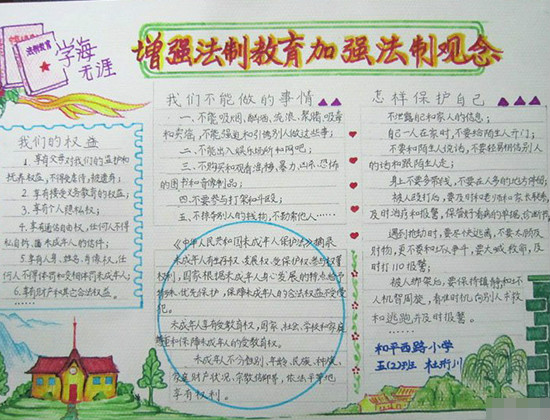 增强法制教育加强法制观念
法制教育
学海
无涯
我们的权益
1、享有父母对我们的监护和
抚养权益,不得免责待,被遗弃;
2、享有接受义务教育的权益;
3、享有个人隐私权;
4、享有通信自由权,任何人不得
私自拆、
未成年人的信件;
5、享有人身、姓名、肖像权,任
何人不得侮辱和受相体罚未成年人;
6、享有财产和其它合法权益。
我们不能做的事情
一、不能吸烟、酗酒、流浪、聚赌、吸毒
和卖淫,不能强迫和引诱别人做这些事;
二、不能出入娱乐场所和网吧;
三、不购买和观看淫秽、暴力、凶杀、恐怖
的图书和音像制品;
四、不要参与打架和斗殴;
五、不得夺别人的钱物,不勒索他人……
《中华人民共和国未成年人保护法》摘录
未成年人享有生存权、发展权、受保护权、参与权等
权利,国家根据未成年人身心发展的特点给予
特殊、优先保护,保障未成年人的合法权益不受侵
犯。
未成年人享有受教育权,国家、社会、学校和家庭
尊重和保障未成年人的受教育权。
未成年人不分性别、年龄、民族、种族、
家庭财产状况、宗教信仰等,依法平等地
享有权利。
怎样保护自己
不泄露自己和家人的信息;
自己一人在家时,不要给陌生人开门;
不要和陌生人说话,不要轻易相信别人
的话和跟陌生人走;
身上不要多带钱,不要在人多的地方停留;
被人殴打后,要及时和老师和家长联系,
及时治疗和报警,保管好看病的单据、诊断书;
遇到抢劫时,要尽快逃离,不要不顾及
对物,更不要和坏人争斗,要大喊救命,及
时打110报警;
被人绑架后,要保持镇静,和坏
人机智周旋,有任时机向别人呼救
和逃跑并及时报警。
和平西路小学
五(2)班 杜珩川